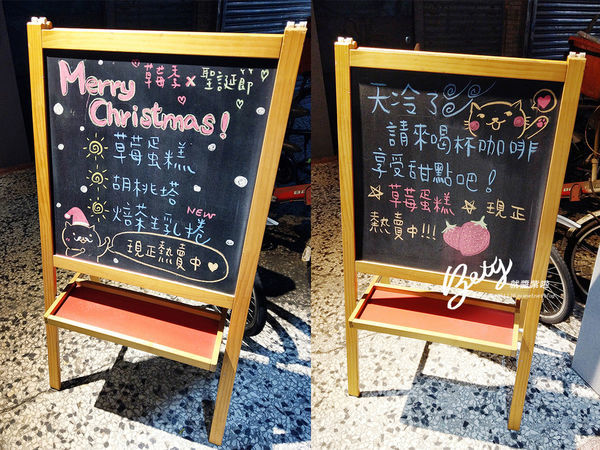 草莓季 x 聖誕節
Merry
Christmas!
草莓蛋糕
胡桃塔
焙茶生乳捲 NEW
現正熱賣中
天冷了
請來喝杯咖啡
享受甜點吧!
草莓蛋糕 現正
熱賣中!!!
Bety